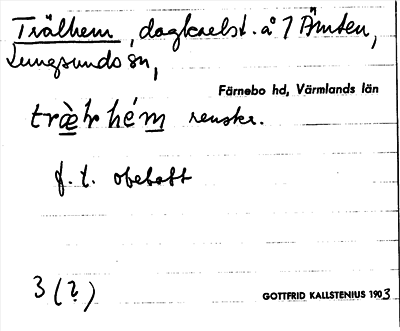 Trälhem, dagkarlst. å 7 Ämten,
Lungsunds sn,
Färnebo hd, Värmlands län
træ̀lr hém renskr.
f. t. obebott
3 (?)
GOTTFRID KALLSTENIUS 1903